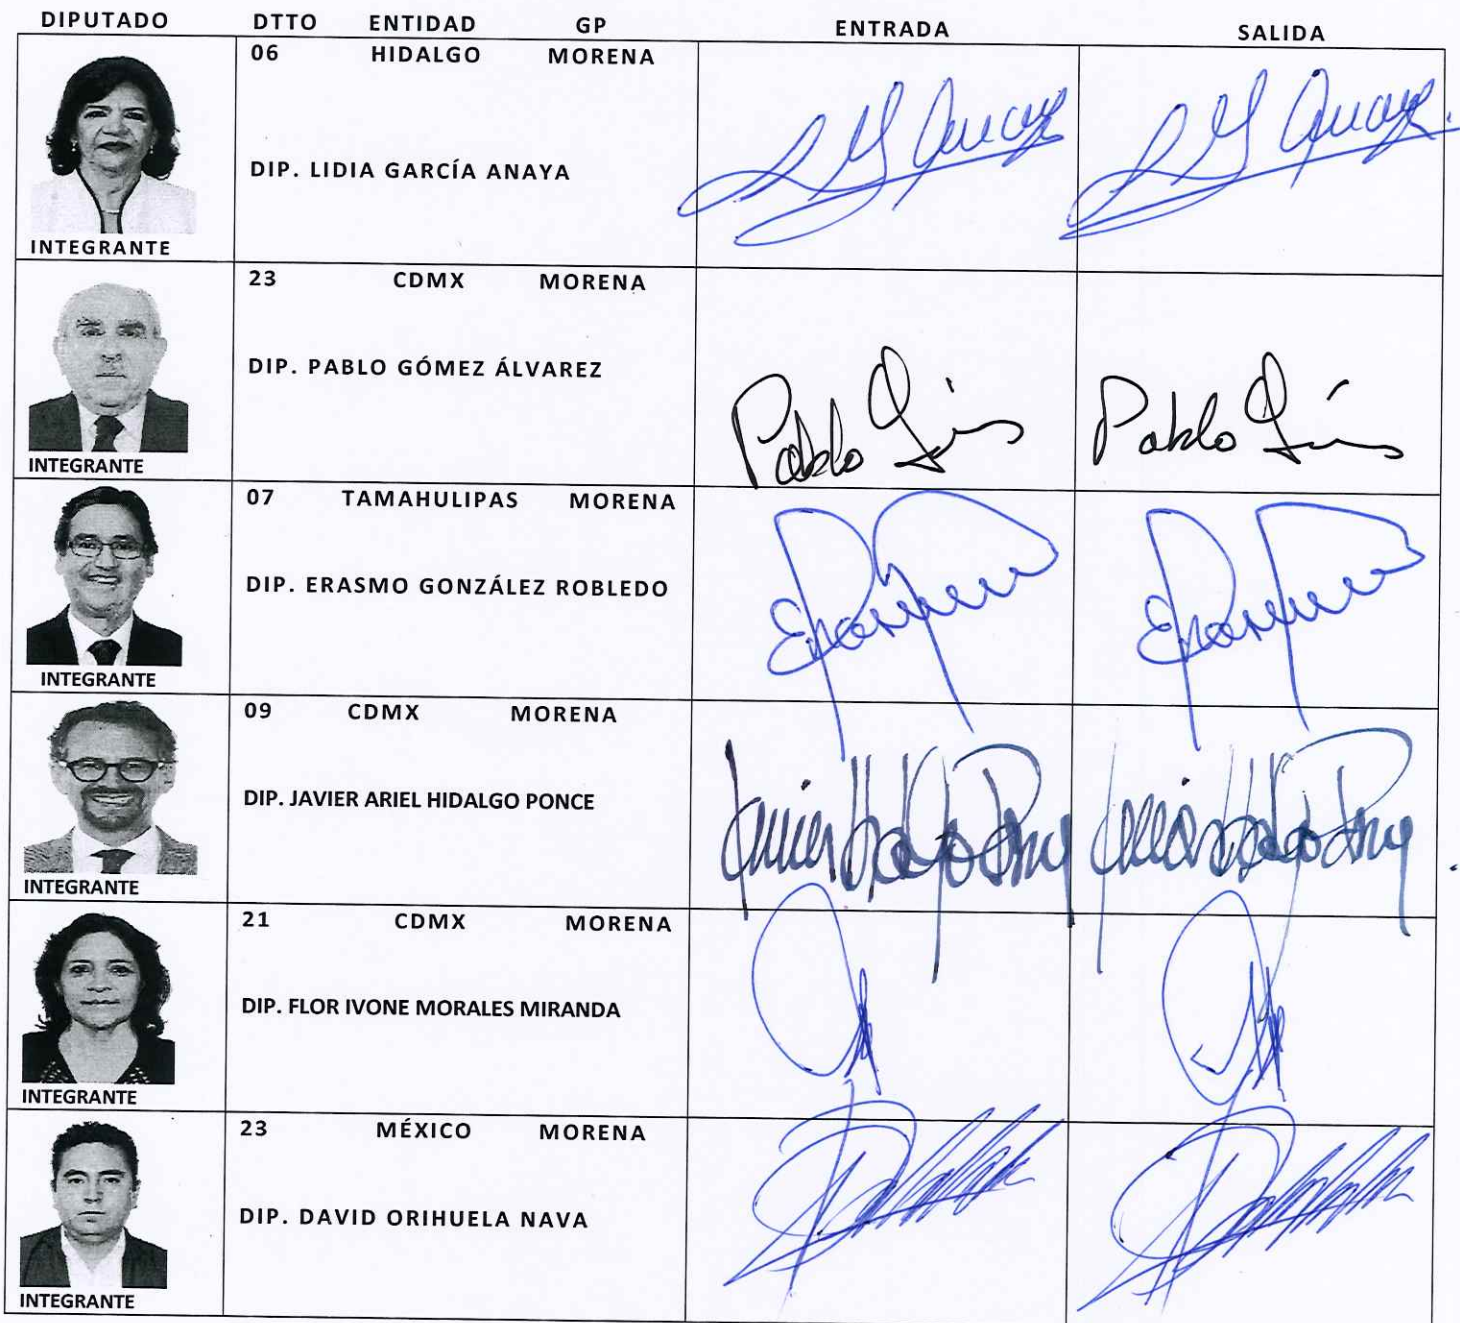 DIPUTADO DTTO ENTIDAD GP ENTRADA SALIDA
06 HIDALGO MORENA
DIP. LIDIA GARCÍA ANAYA
INTEGRANTE
23 CDMX MORENA
DIP. PABLO GÓMEZ ÁLVAREZ
Pablo Pablo
INTEGRANTE
07 TAMAHULIPAS MORENA
DIP. ERASMO GONZÁLEZ ROBLEDO
INTEGRANTE
09 CDMX MORENA
DIP. JAVIER ARIEL HIDALGO PONCE
INTEGRANTE
21 CDMX MORENA
DIP. FLOR IVONE MORALES MIRANDA
INTEGRANTE
23 MÉXICO MORENA
DIP. DAVID ORIHUELA NAVA
INTEGRANTE